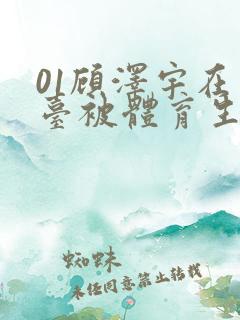 01顾澤宇在
臺被體育生
蜘蛛
未任同意禁止转载